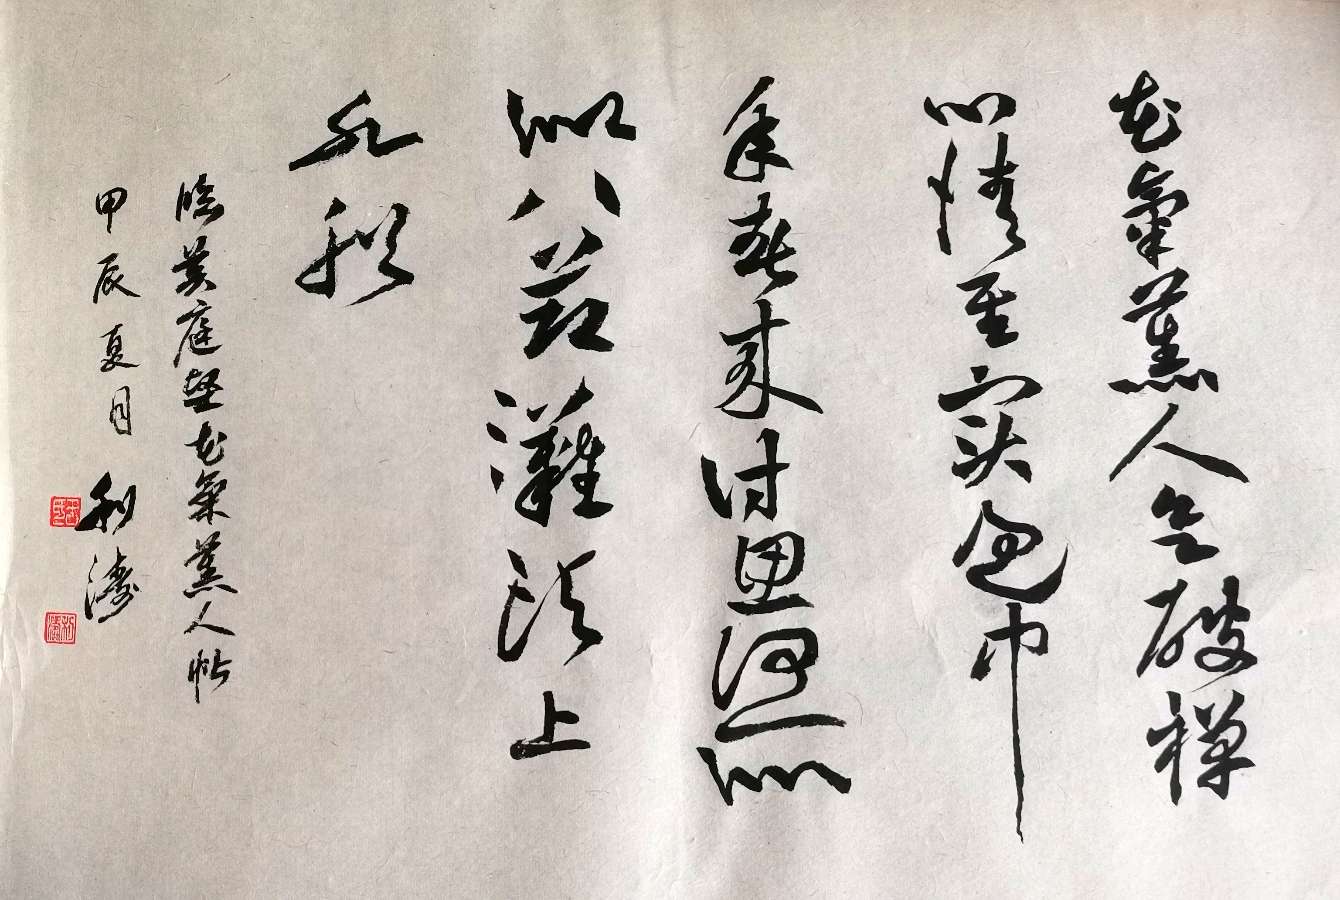 花氣薰人欲破禪
心情其實過中
年春來詩思何所
似八節灘頭上
水船
臨黄庭堅花氣薰人帖
甲辰夏月 利濤